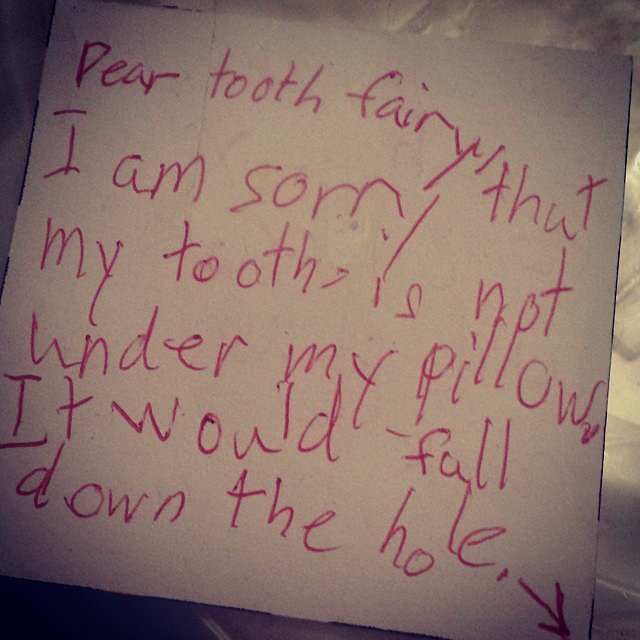 Dear tooth fairy,
I am sorry that
my tooth is not
under my pillow.
It would fall
down the hole. →